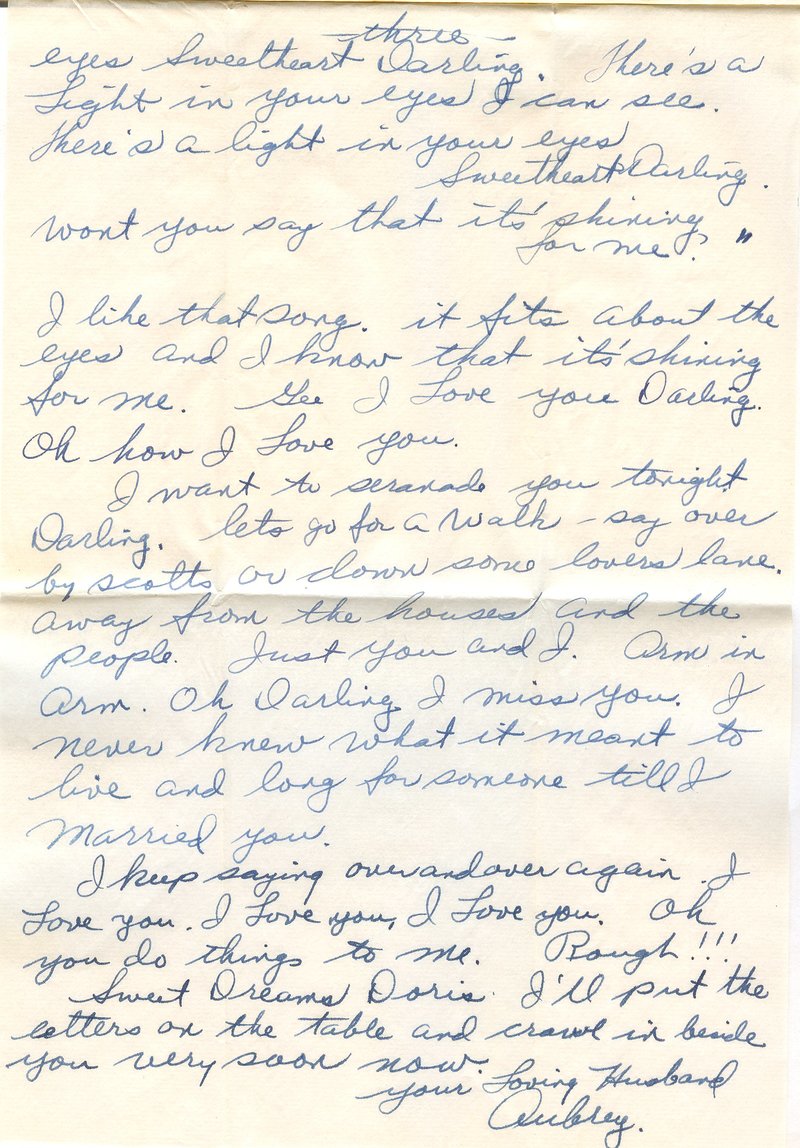 - three -
eyes Sweetheart Darling. There's a
Light in your eyes I can see.
There's a light in your eyes
Sweetheart Darling.
wont you say that it's shining
for me? "
I like that song. it fits about the
eyes and I know that it's shining
for me. Gee I Love you Darling.
Oh how I Love you.
I want to seranade you tonight
Darling. lets go for a walk - say over
by scotts or down some lovers lane.
away from the houses and the
people. Just you and I. Arm in
Arm. Oh Darling I miss you. I
never knew what it meant to
live and long for someone till I
Married you.
I keep saying over and over again. I
Love you. I Love you, I Love you. Oh
you do things to me. Rough!!!
Sweet Dreams Doris. I'll put the
letters on the table and crawl in beside
you very soon now.
your Loving Husband
Aubrey.